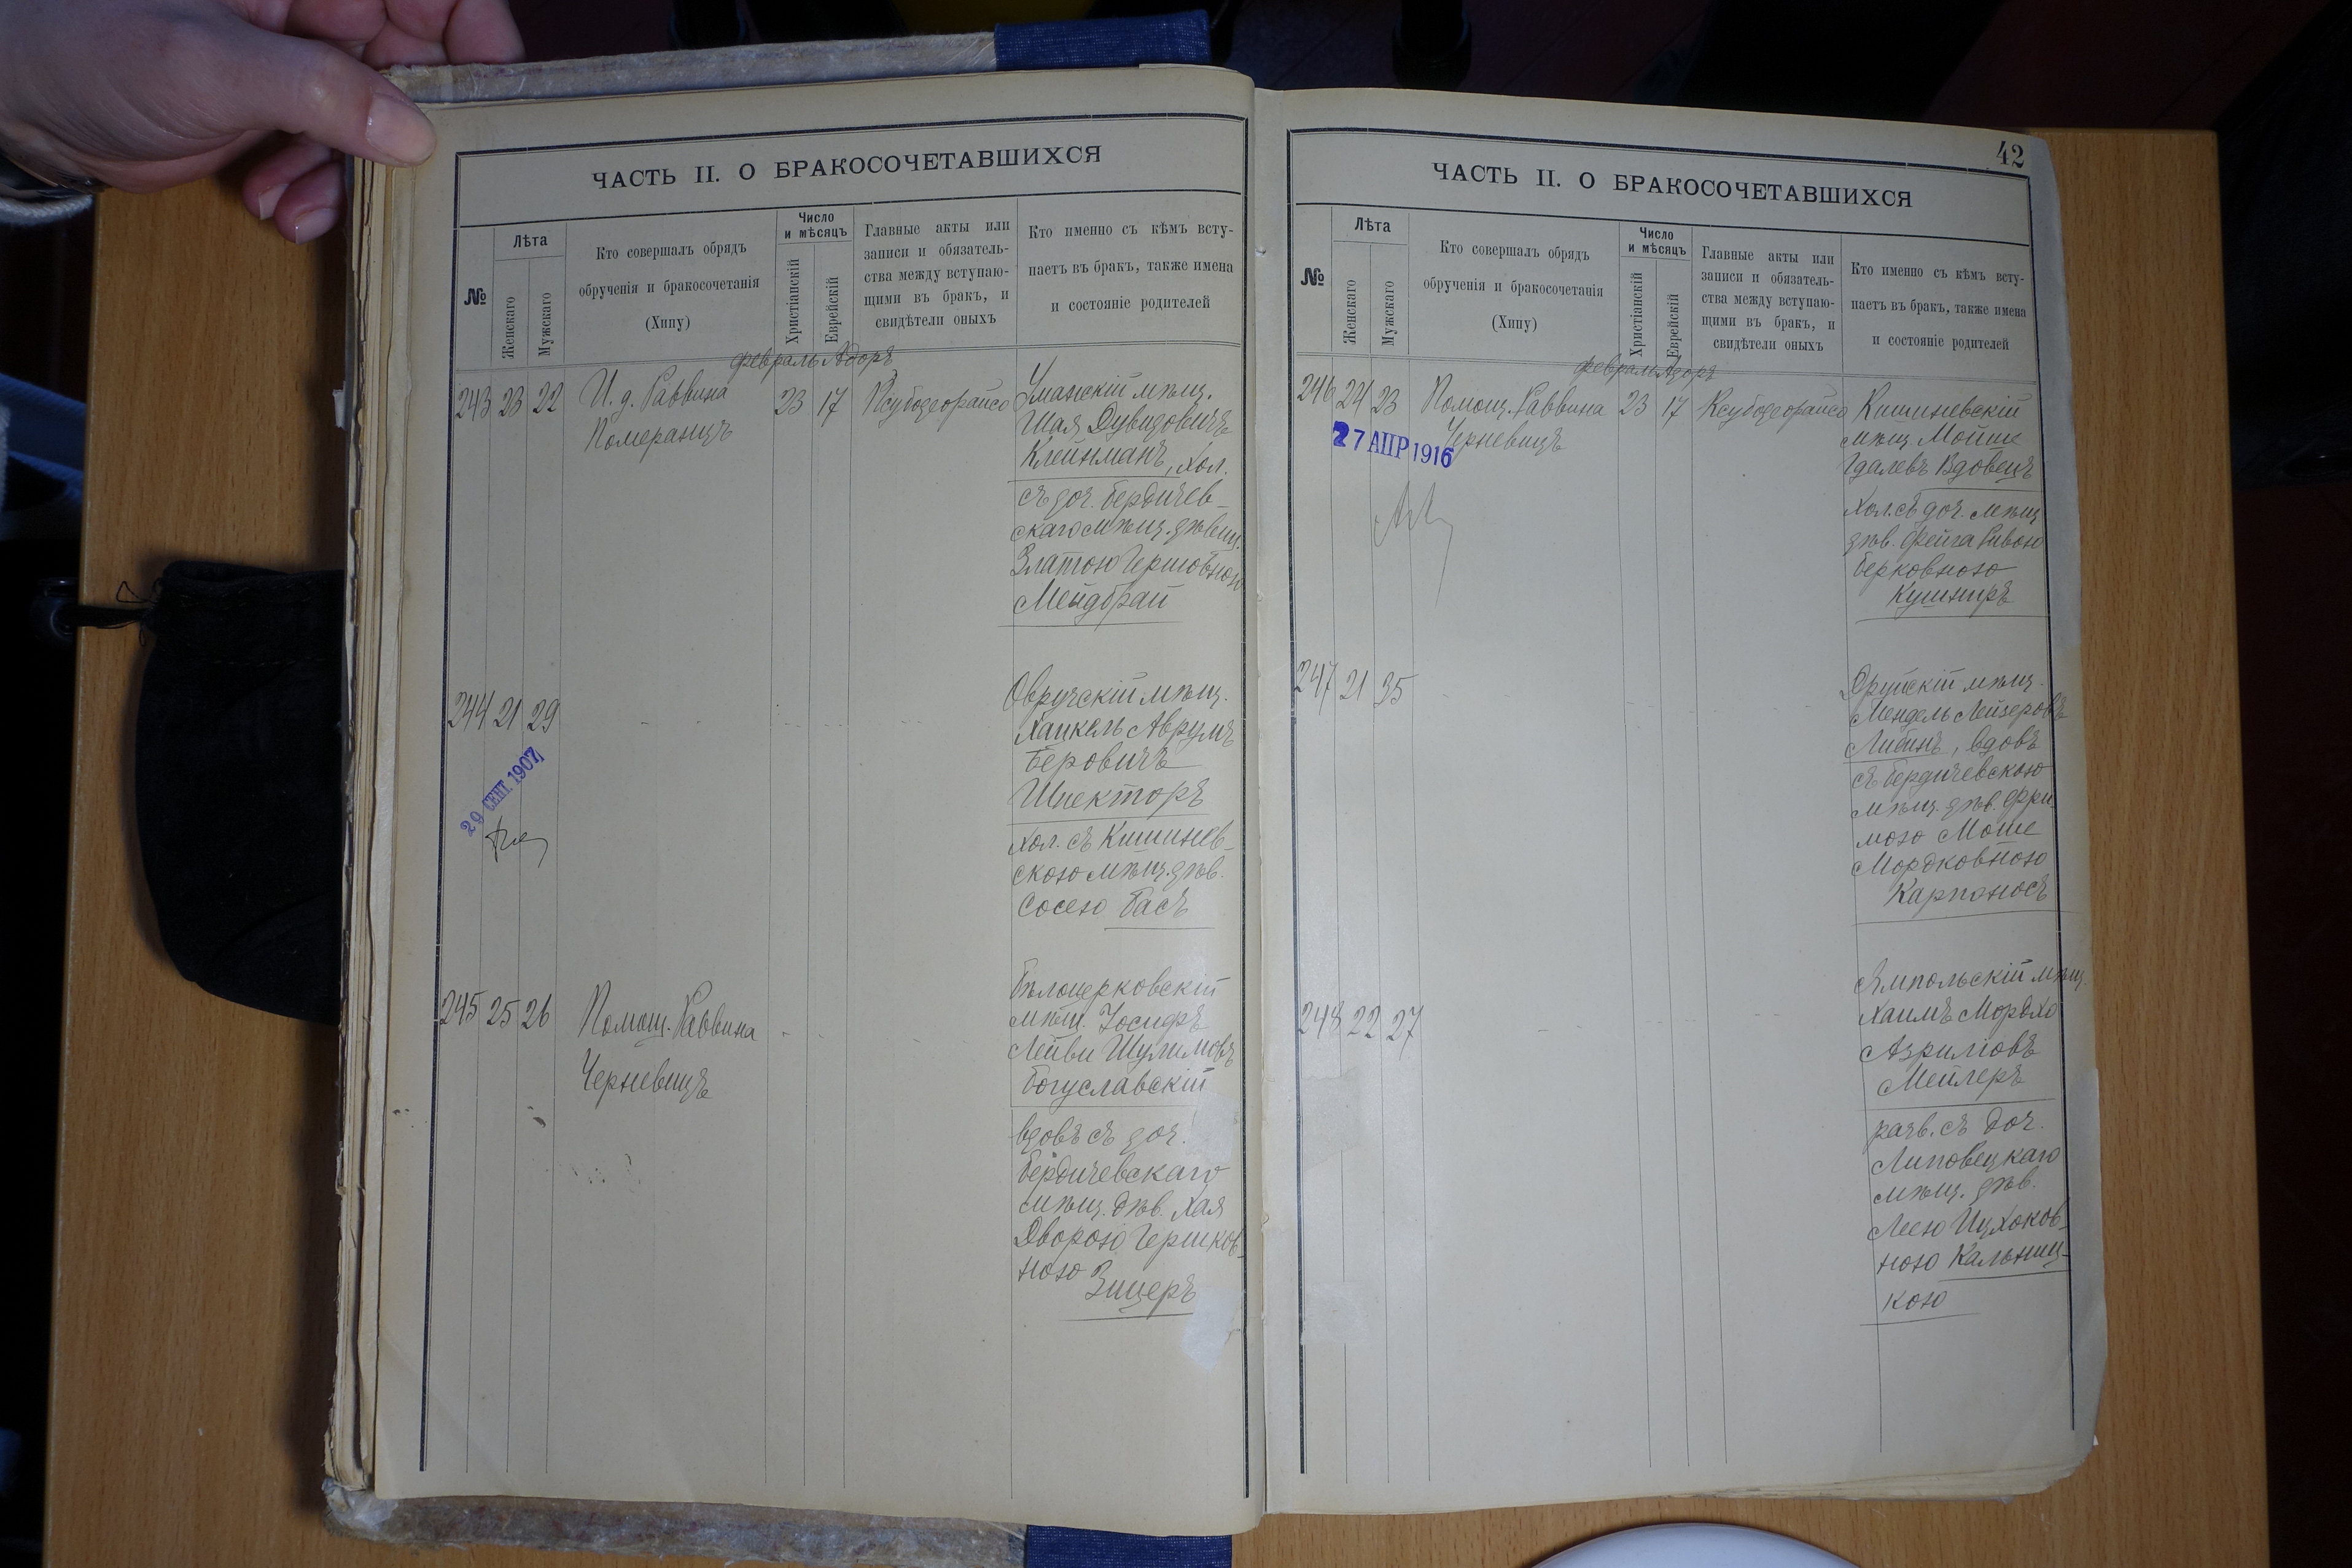 ЧАСТЬ II. О БРАКОСОЧЕТАВШИХСЯ
№
Лѣта
Женскаго
Мужскаго
Кто совершалъ обрядъ
обрученія и бракосочетанія
(Хипу)
Число
и мѣсяцъ
Христіанскій
Еврейскій
Главные акты или
записи и обязатель-
ства между вступаю-
щими въ бракъ, и
свидѣтели оныхъ
Кто именно съ кѣмъ всту-
паетъ въ бракъ, также имена
и состояніе родителей
февраль Адоръ
243 23 22 И. д. Раввина
Померанцъ
23 17
Уманскій мѣщ.
Шая Дувидовичъ
Клейнманъ, хол.
съ доч. Бердичев-
скаго мѣщ. дѣвиц.
Златою Гершовною
Мейдбрай
244 21 29
29 СЕНТ. 1907
Овручскій мѣщ.
Хаикель Аврумъ
Беровичъ
Шпекторъ
хол. съ Кишинев-
скою мѣщ. дѣв.
Сосею Басъ
245 25 26 Помощ. Раввина
Черневицъ
Бѣлоцерковскій
мѣщ. Іосифъ
Лейви Шулимовъ
Богуславскій
вдовъ съ доч.
Бердичевскаго
мѣщ. дѣв. Хая
Дворою Гершков-
ною
Зицеръ
42
ЧАСТЬ II. О БРАКОСОЧЕТАВШИХСЯ
№
Лѣта
Женскаго
Мужскаго
Кто совершалъ обрядъ
обрученія и бракосочетанія
(Хипу)
Число
и мѣсяцъ
Христіанскій
Еврейскій
Главные акты или
записи и обязатель-
ства между вступаю-
щими въ бракъ, и
свидѣтели оныхъ
Кто именно съ кѣмъ всту-
паетъ въ бракъ, также имена
и состояніе родителей
февраль Адоръ
246 24 23 Помощ. Раввина
Черневицъ
23 17
27 АПР 1916
Кишиневскій
мѣщ. Мойше
Гдалевъ Вдовецъ
Хол. съ доч. мѣщ
дѣв. Фейга Ривою
Берковною
Кушниръ
247 21 35
Друйскій мѣщ.
Мендель Лейзеровъ
Либинъ, вдовъ
съ Бердичевскою
мѣщ. дѣв. Фри
мою Моше
Мордковною
Карпоносъ
248 22 27
Ямпольскій мѣщ.
Хаимъ Мордхо
Азриліовъ
Мейлеръ
разв. съ доч.
Липовецкаго
мѣщ. дѣв.
Леею Ицхоков-
ною Кальниц-
кою